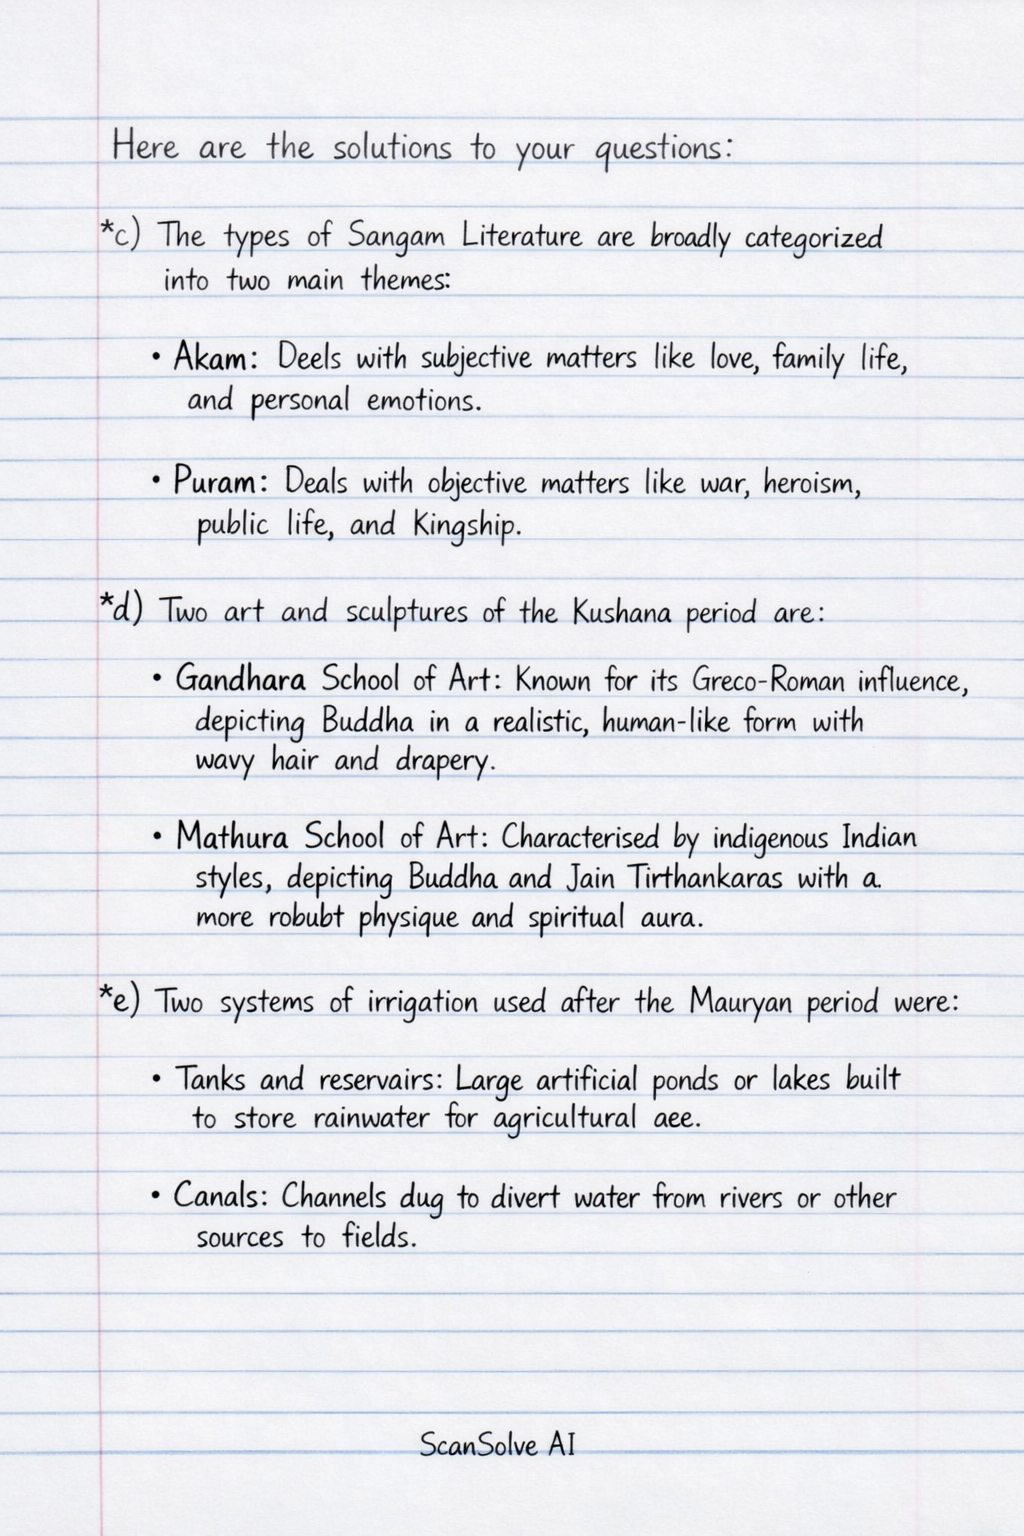 Here are the solutions to your questions:
*c) The types of Sangam Literature are broadly categorized
into two main themes:
• Akam: Deels with subjective matters like love, family life,
and personal emotions.
• Puram: Deals with objective matters like war, heroism,
public life, and Kingship.
*d) Two art and sculptures of the Kushana period are:
• Gandhara School of Art: Known for its Greco-Roman influence,
depicting Buddha in a realistic, human-like form with
wavy hair and drapery.
• Mathura School of Art: Characterised by indigenous Indian
styles, depicting Buddha and Jain Tirthankaras with a
more robubt physique and spiritual aura.
*e) Two systems of irrigation used after the Mauryan period were:
• Tanks and reservairs: Large artificial ponds or lakes built
to store rainwater for agricultural aee.
• Canals: Channels dug to divert water from rivers or other
sources to fields.
ScanSolve AI